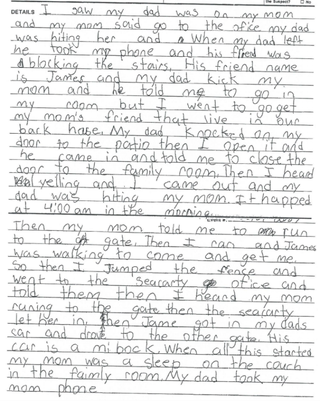 the Suspect? No
DETAILS I saw my dad was on my mom
and my mom said go to the ofice my dad
was hiting her and When my dad left
he took my phone and his friend was
blocking the stairs. His friend name
is James and my dad kick my
mom and he told me to go in
my room but I went to go get
my mom's friend that live in our
back hase. My dad knocked on my
door to the patio then I open it and
he came in and told me to close the
door to the family room. Then I heard
yelling and I came out and my
dad was hiting my mom. It happed
at 4:00 am in the morning.
Then my mom told me to run
to the gate. Then I ran and James
was walking to come and get me
so then I Jumped the fence and
went to the seacarty ofice and
told them then I heard my mom
runing to the gate then the seacarty
let her in, then Jame got in my dads
car and drov to the other gate. His
car is a mi bock. When all this started
my mom was a sleep on the couch
in the faimly room. My dad took my
mom phone